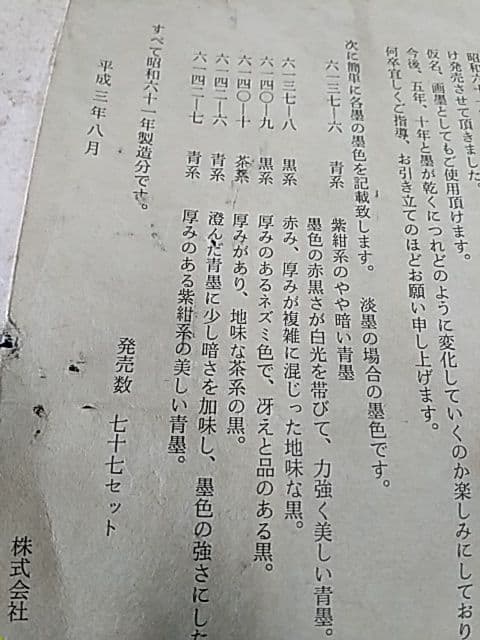 昭和六十一
け発売させて頂きました。
仮名、画墨としてもご使用頂けます。
今後、五年、十年と墨が乾くにつれどのように変化していくのか楽しみにしており
何卒宜しくご指導、お引き立てのほどお願い申し上げます。
次に簡単に各墨の墨色を記載致します。 淡墨の場合の墨色です。
六一三七ー六 青系 紫紺系のやや暗い青墨
墨色の赤黒さが白光を帯びて、力強く美しい青墨。
六一三七ー八 黒系 赤み、厚みが複雑に混じった地味な黒。
六一四〇ー九 黒系 厚みのあるネズミ色で、冴えと品のある黒。
六一四〇ー十 茶系 厚みがあり、地味な茶系の黒。
六一四二ー六 青系 澄んだ青墨に少し暗さを加味し、墨色の強さにした
六一四二ー七 青系 厚みのある紫紺系の美しい青墨。
すべて昭和六十一年製造分です。
平成三年八月
発売数 七十七セット
株式会社